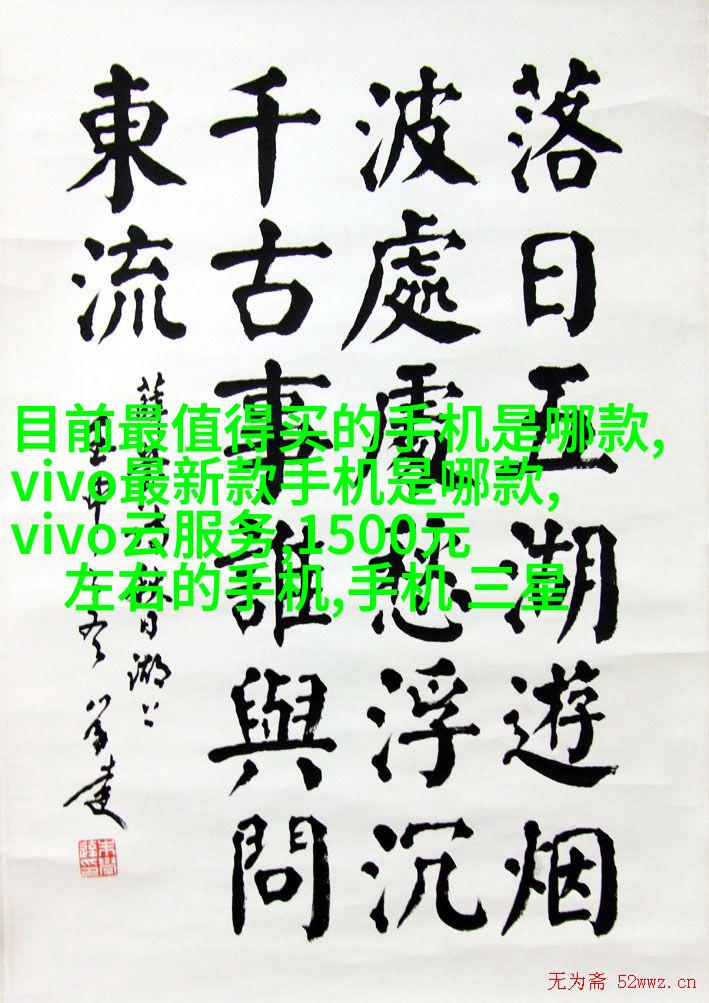 落日五湖遊烟
波處處愁浮沉
千古事誰與問
東流
秋日湖上
目前最值得买的手机是哪款,
vivo最新款手机是哪款,
vivo云服务,1500元
左右的手机,手机 三星
无为斋 52wwz.cn